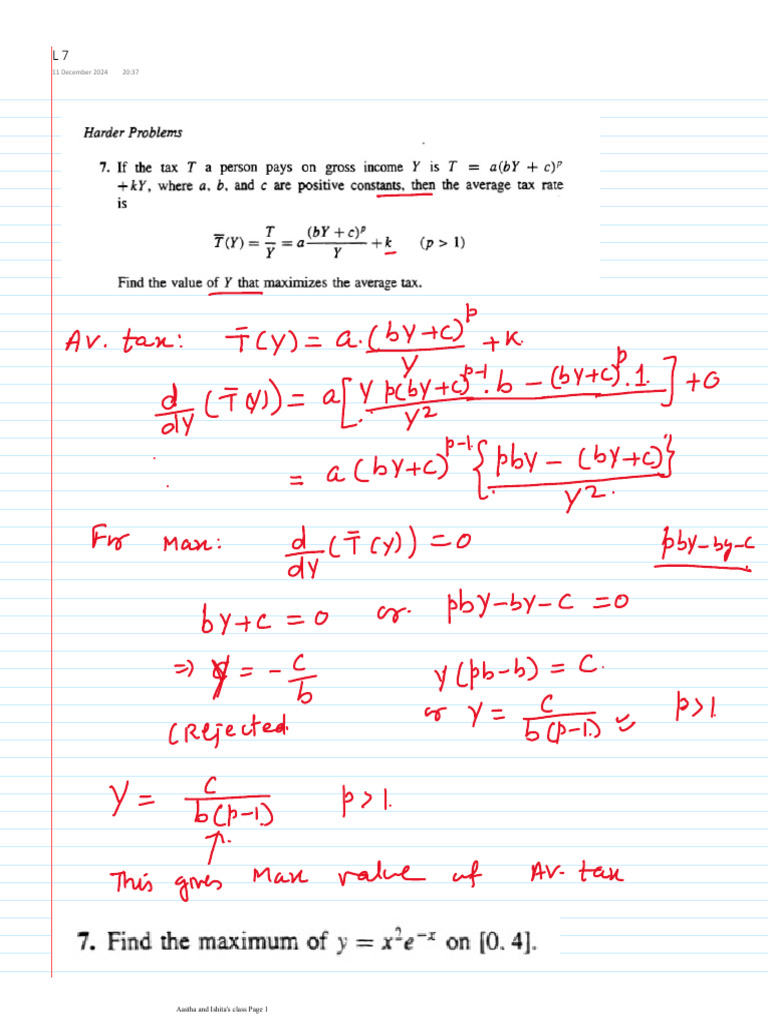 L 7
11 December 2024 20:37
Harder Problems
7. If the tax T a person pays on gross income Y is T = a(bY + c)^p
+kY, where a, b, and c are positive constants, then the average tax rate
is
T̅(Y) = T/Y = a (bY + c)^p/Y + k (p > 1)
Find the value of Y that maximizes the average tax.
Av. tax: T̅(Y) = a.(bY+c)^p/Y + k
d/dY (T̅(Y)) = a[Y p(bY+c)^p-1 . b − (bY+c)^p . 1 / Y²] + 0
= a(bY+c)^p-1 {pbY − (bY+c)} / Y².
For Max: d/dY (T̅(Y)) = 0 pby−by−c
bY+c = 0 or. pbY−bY−c = 0
⇒ Y = − c/b y(pb−b) = c.
(Rejected or Y = c/b(p−1) p>1.
Y = c/b(p−1) p>1.
This gives Max value of Av. tax
7. Find the maximum of y = x²e^−x on [0. 4].
Aastha and Ishita's class Page 1